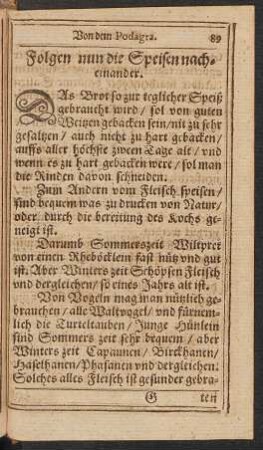 Von dem Podagra. 89
Folgen nun die Speisen nach-
einander.
DAs Brot so zur teglicher Speiß
gebraucht wird / sol von guten
Weitzen gebacken sein / nit zu sehr
gesaltzen / auch nicht zu hart gebacken /
auffs aller höchste zween Tage alt / und
wenn es zu hart gebacken were / sol man
die Rinden davon schneiden.
Zum Andern vom Fleisch speisen /
sind bequem was zu drucken von Natur /
oder durch die bereitung des Kochs ge-
neigt ist.
Darumb Sommerszeit Wiltpret
von einen Rheböcklein fast nütz und gut
ist. Aber Winters zeit Schöpsen Fleisch
und dergleichen / so eines Jahrs alt ist.
Von Vogeln mag man nützlich ge-
brauchen / alle Waltvogel / und fürnem-
lich die Turteltauben / Junge Hünlein
sind Sommers zeit sehr bequem / aber
Winters zeit Capaunen / Birckhanen /
Haselhanen / Phasanen und dergleichen.
Solches alles Fleisch ist gesunder gebra-
ten